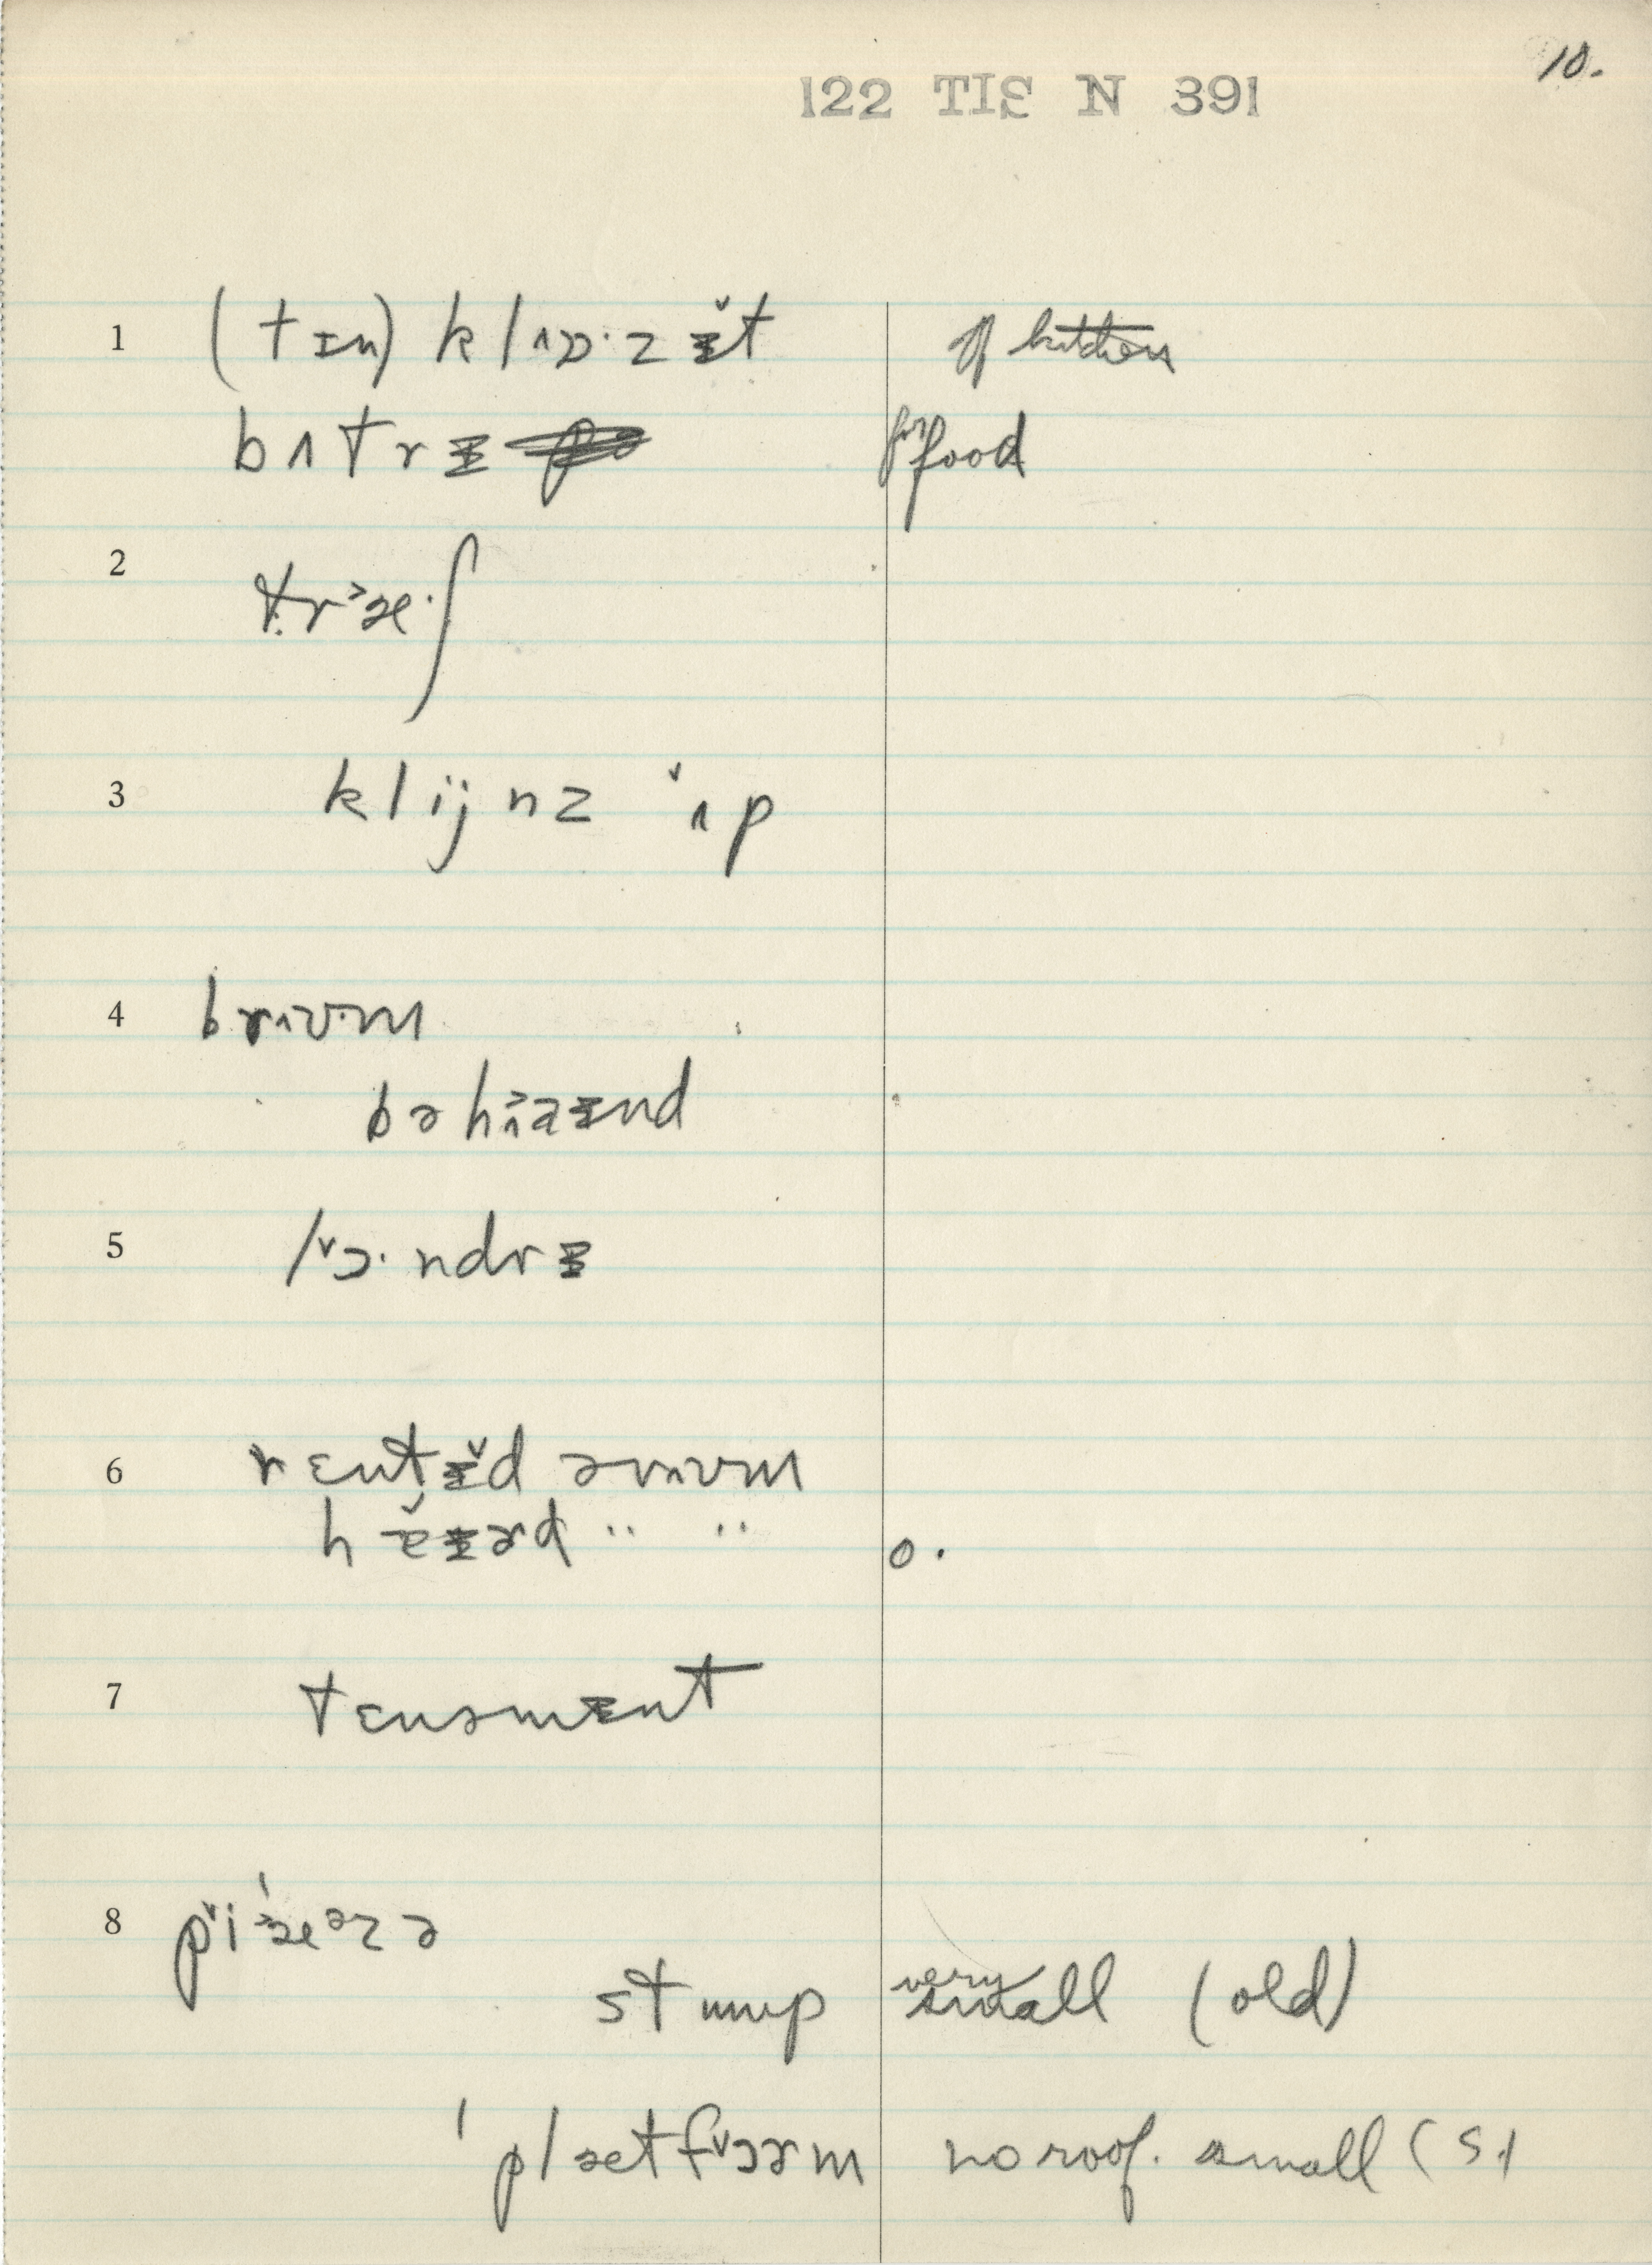 10.
122 TIS N 391
1 (tɪn) klᶺɒ·zɨ̌t of kitchen
bʌtrɨ for food
2 tr˃æ·ʃ
3 klijnz ˅ʌp
4 brᶺʊ·m
bəhᶺ˃aɨnd
5 l˅ɔ·ndrɨ
6 rɛntɨ̌d ərᶺʊm
hɨərd " " o.
7 tɛnəmɨnt
8 p˅i'˃æᵊzə
stuup very small (old)
'plætf˅ɔərm no roof. small (st